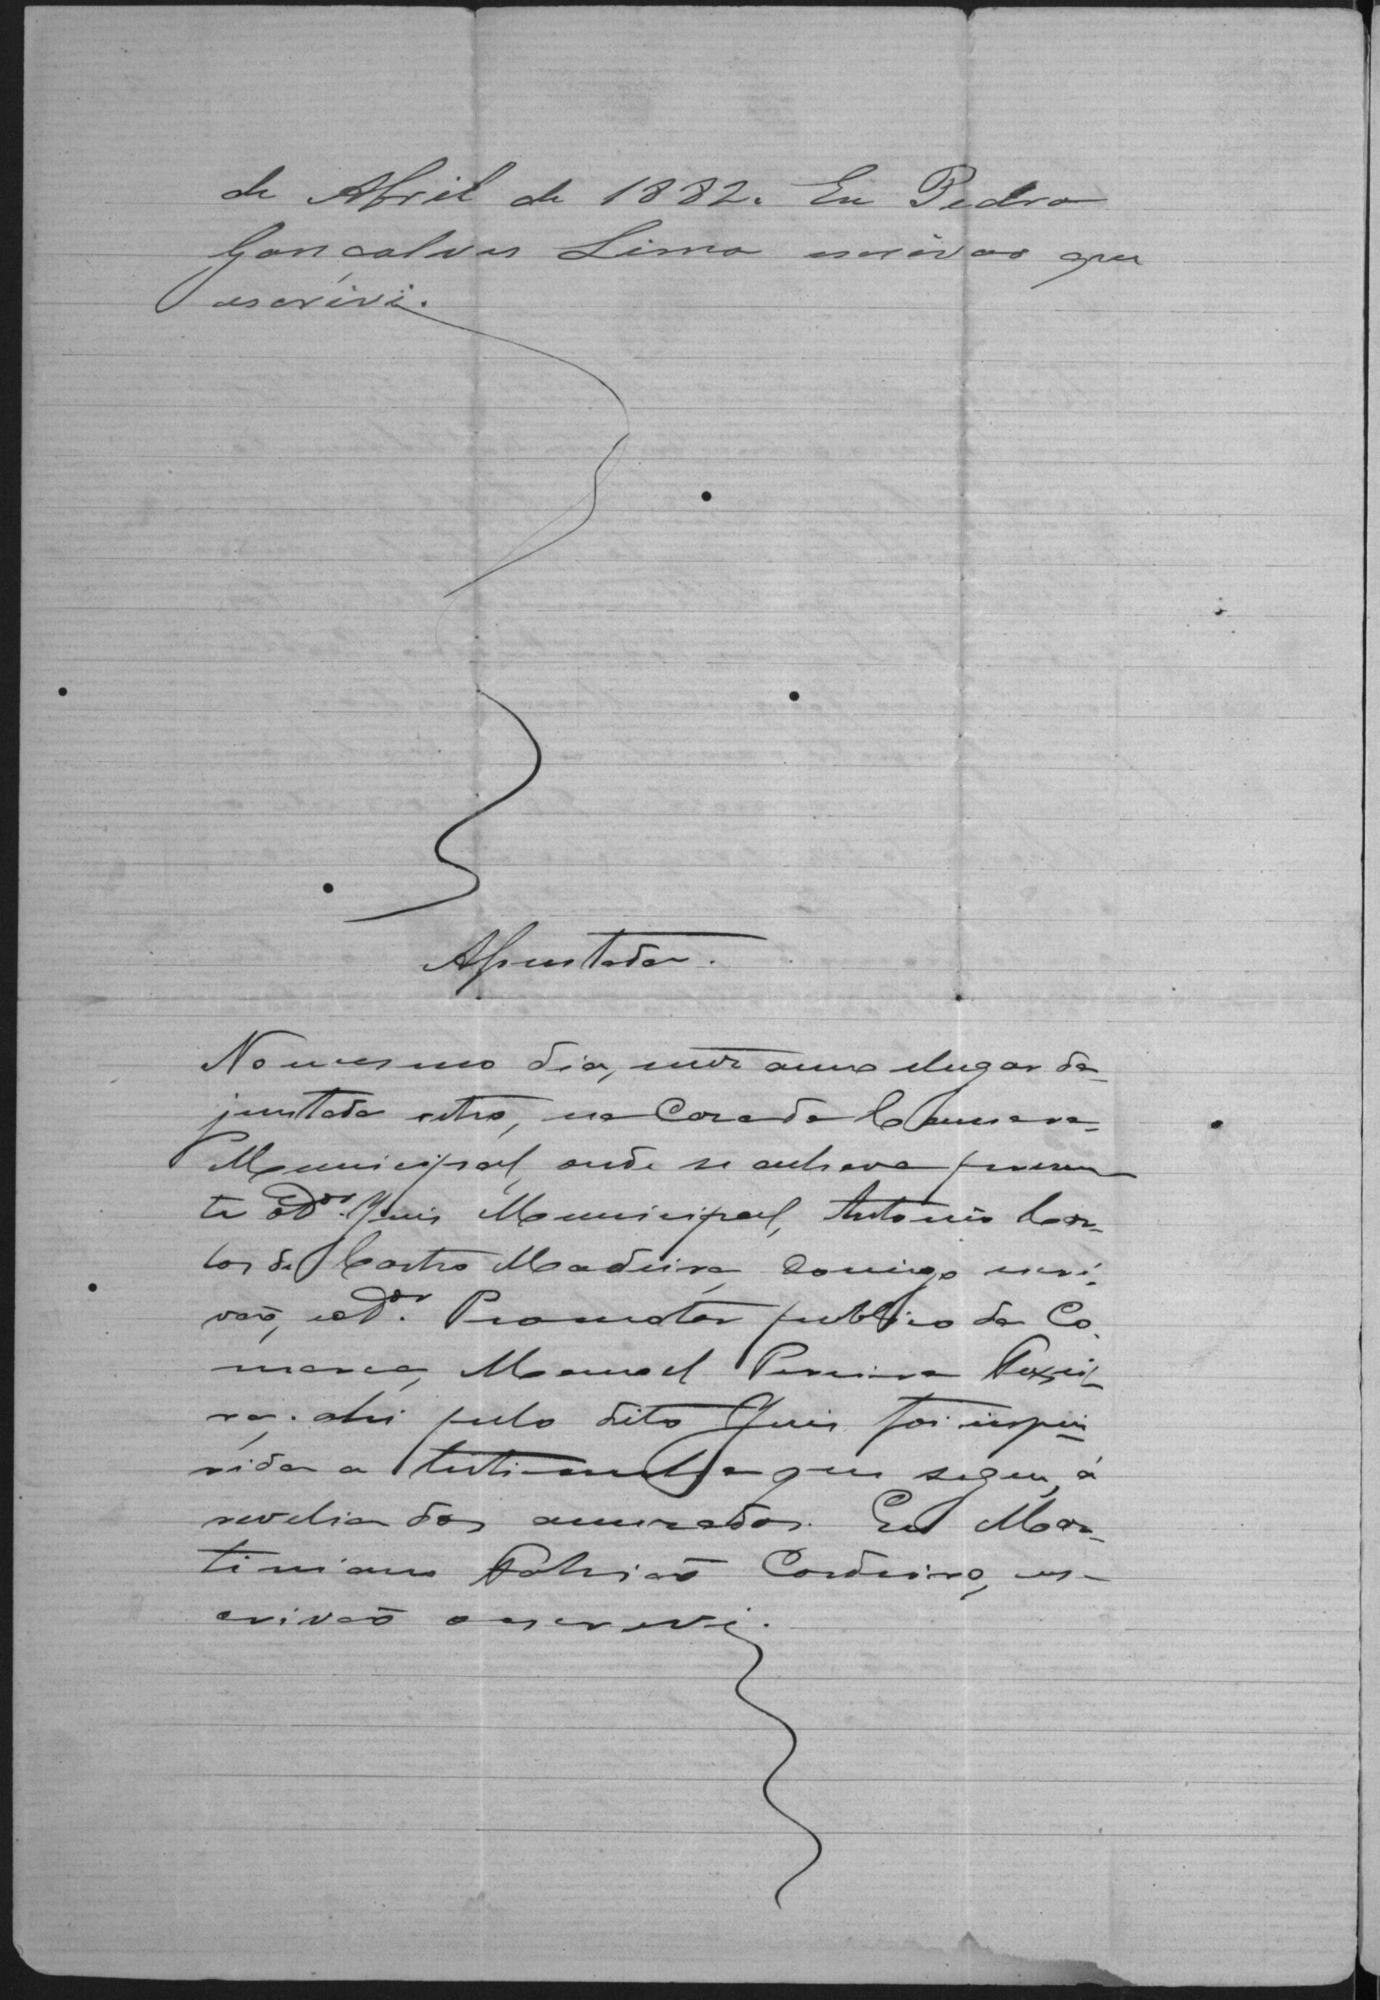 de Abril de 1882. Eu Pedro
Gonçalves Lima escrivao que
escrivi.
Assentada.
No mesmo dia, mez anno e lugar da
juntada retro, na Casa da Camara
Municipal, onde se achava presen
te o Dor. Juis Municipal, Antonio Car-
los de Castro Madeira, comigo escri-
vaõ, e o Dor. Promotor publico da Co
marca, Manoel Pereira
ra. ahi pelo dito Juis foi inque
rida a testimunha que segue, á
revelia dos accusados. Eu Mar-
timiano Cordeiro, es-
crivaõ o escrevi.